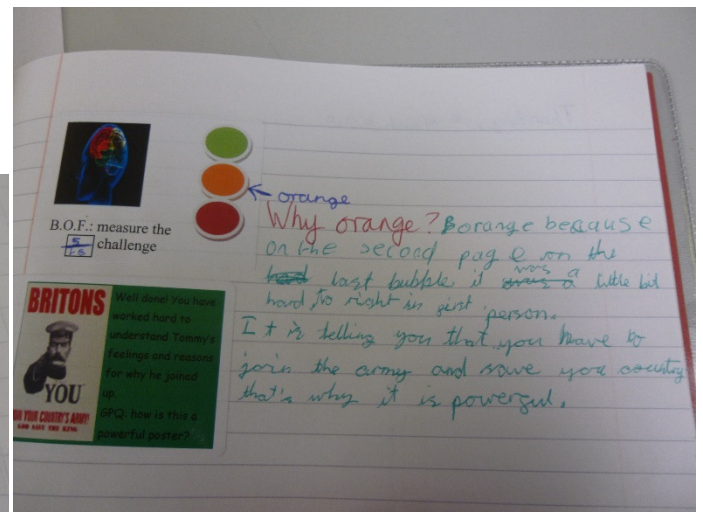 ← orange
B.O.F.: measure the
challenge
5
15
Why orange? Borange because
on the second page on the
last bubble it was a little bit
hard to right in first person.
It is telling you that you have to
join the army and save you country
that's why it is powerful.
BRITONS
YOU
JOIN YOUR COUNTRY'S ARMY!
GOD SAVE THE KING
Well done! You have
worked hard to
understand Tommy's
feelings and reasons
for why he joined
up.
GPQ: how is this a
powerful poster?